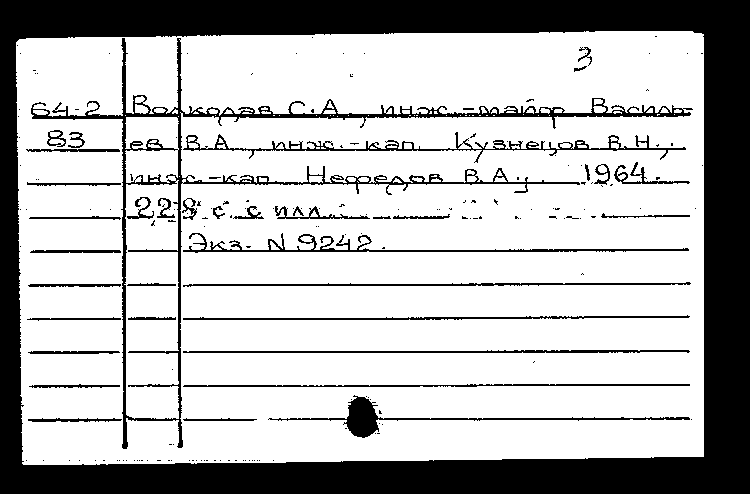 3
64-2 Волкодав С.А., инж.-майор Василь-
83 ев В.А., инж.-кап. Кузнецов В.Н.,
инж.-кап. Нефедов В.А., 1964.
228 с. с илл.
Экз. N 9242.